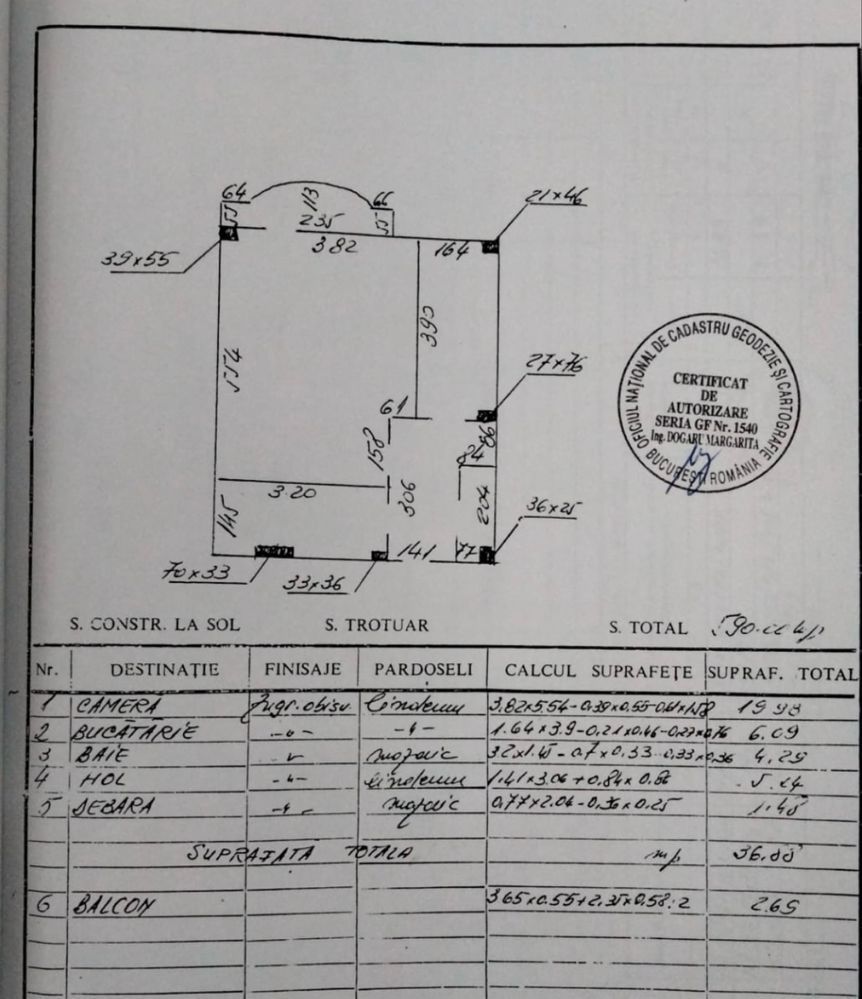 64
113
66
21×46
55
235
55
3.82
164
39×55
390
554
27×76
61
86
158
84
3.20
306
204
145
36×25
141
77
70×33
33×36
OFICIUL NAȚIONAL DE CADASTRU GEODEZIE ȘI CARTOGRAFIE
CERTIFICAT
DE
AUTORIZARE
SERIA GF Nr. 1540
Ing. DOGARU MARGARITA
BUCUREȘTI ROMÂNIA
S. CONSTR. LA SOL S. TROTUAR S. TOTAL
Nr. DESTINAȚIE FINISAJE PARDOSELI CALCUL SUPRAFEȚE SUPRAF. TOTAL
1 CAMERA zugr. obisn. linoleum 3.82×5.54-0.39×0.55-0.61×1.58
2 BUCĂTĂRIE -"- -"- 1.64×3.9-0.21×0.46-0.27×0.76 6.09
3 BAIE " mozaic 3.2×1.45-0.7×0.33-0.33×0.36 4.29
4 HOL -"- linoleum 1.41×3.06+0.84×0.86
5 DEBARA -"- mozaic 0.77×2.04-0.36×0.25 1.48
SUPRAFATĂ TOTALA mp
6 BALCON 3.65×0.55+2.35×0.58:2 2.69